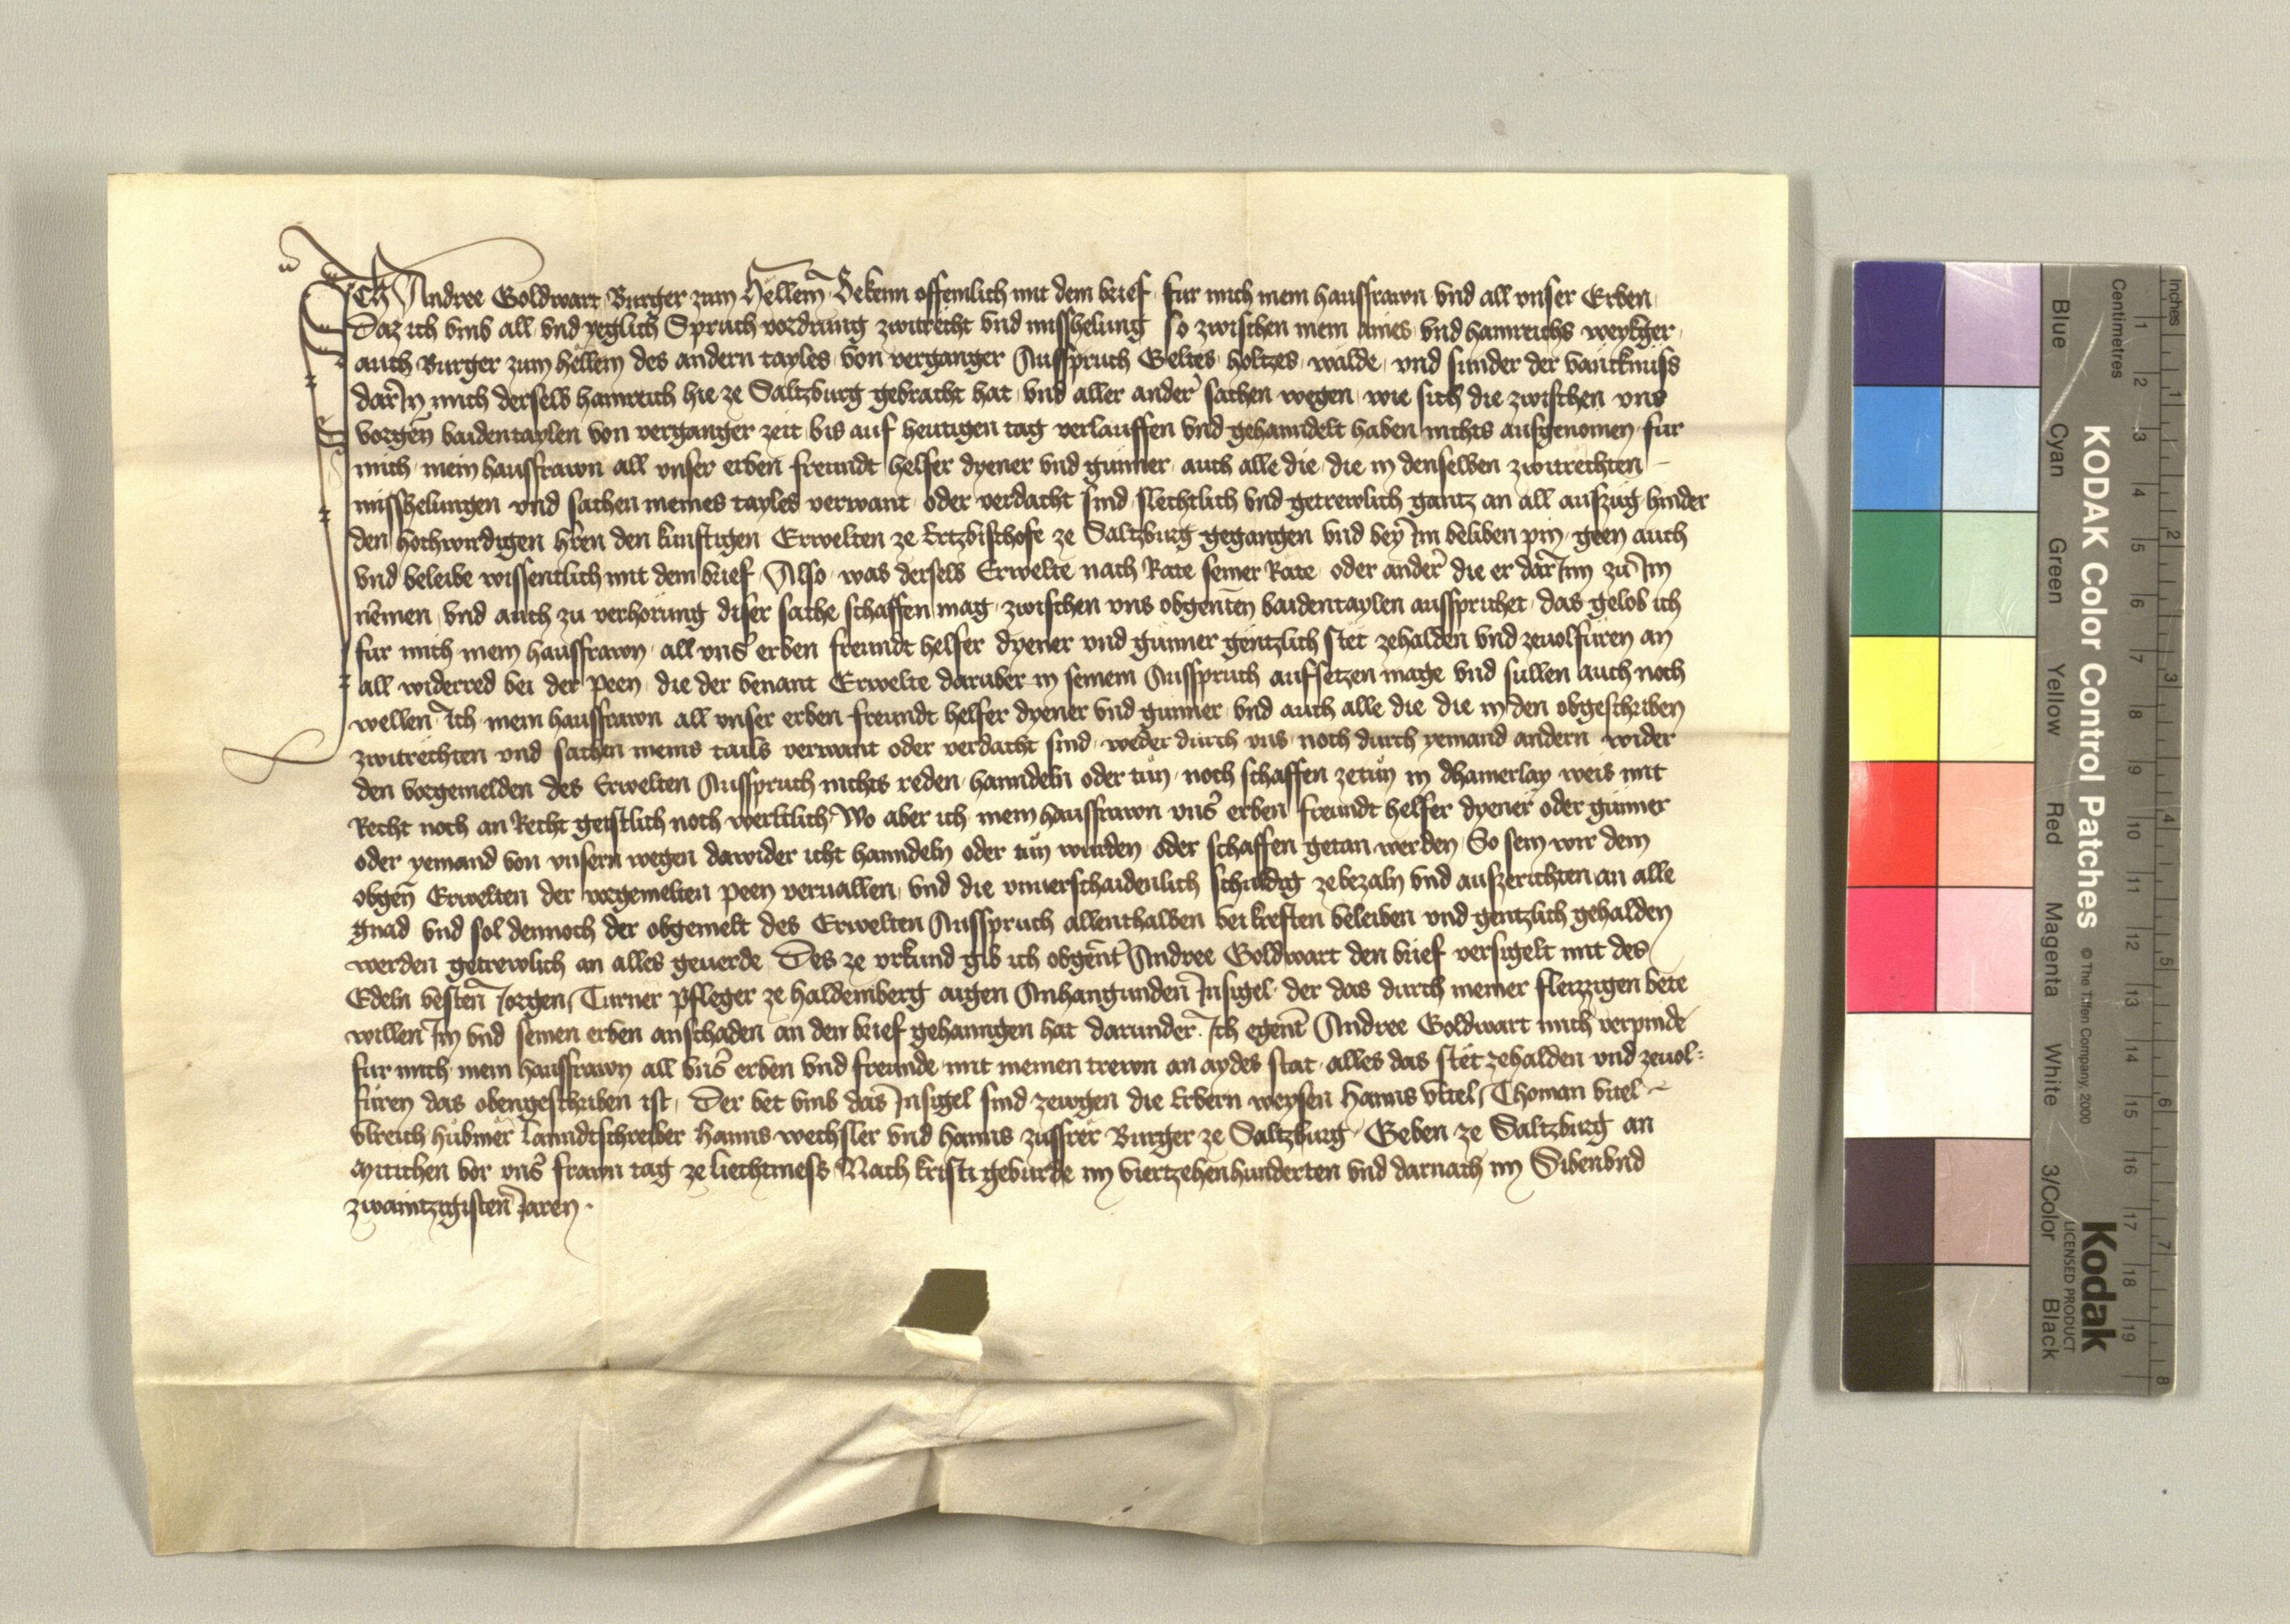 Ich Andree Goldwart Burger zum Hellein Bekenn offenlich mit dem brief fur mich mein hausfrawn vnd all vnser Erben
Daz ich vmb all vnd yeglich Spruch vordrung zwitrecht vnd misshelung so zwischen mein aines vnd hainreichs
auch Burger zum hellein des andern tayles von verganger Ausspruch Geltes holtzes wälde vnd sunder der vancknuss
darĩn mich derselb hainreich hie ze Saltzburg gebracht hat vnd aller ander sachen wegen wie sich die zwischen vns
vorgen̄ baidentaylen von verganger zeit bis auf heutigen tag verlauffen vnd gehanndelt haben nichts ausgenomen fur
mich mein hausfrawn all vnser erben freundt helfer dyener vnd gunner auch alle die die in denselben zwitrechten
misshelungen vnd sachen meines tayles verwant oder verdacht sind slechtlich vnd getrewlich gantz an all auszug hinder
den hochwirdigen hren den kunftigen Erwelten ze Ertzbischofe ze Saltzburg gegangen vnd bey Im beliben pin geen auch
vnd beleibe wissentlich mit dem brief Also was derselb Erwelte nach Rate seiner Räte oder ander die er darĩnn zu Im
nemen vnd auch zu verhorung diser sache schaffen mag zwischen vns obgenten baidentaylen aussprichet das gelob ich
fur mich mein hausfrawn all vns erben freundt helfer dyener vnd gunner gentzlich stet zehalden vnd zeuolfüren an
all widerred bei der peen die der benant Erwelte daruber in seinem Ausspruch aufsetzen mage vnd sullen auch noch
wellen ich mein hausfrawn all vnser erben freundt helfer dyener vnd gunner vnd auch alle die die in den obgeschriben
zwitrechten vnd sachen meins tails verwant oder verdacht sind weder durch vns noch durch yemand andern wider
den vorgemelden des Erwelten Ausspruch nichts reden hanndeln oder tůn noch schaffen zetůn in dhainerlay weis mit
Recht noch an Recht geistlich noch werltlich Wo aber ich mein hausfrawn vns erben freundt helfer dyener oder gunner
oder yemand von vnsern wegen dawider icht hanndeln oder tůn wurden oder schaffen getan werden So sein wir dem
obgen̄ Erwelten der vorgemelten peen veruallen vnd die vnuerschaidenlich schuldig zebezaln vnd auszerichten an alle
gnad vnd sol dennoch der obgemelt des Erwelten Ausspruch allenthalben bei kreften beleiben vnd gentzlich gehalden
werden getrewlich an alles geuerde Des ze vrkund gib ich obgent Andree Goldwart den brief versigelt mit des
Edeln vesten Jorgen Turner pfleger ze haldemberg aigen Anhangunden Insigel der das durch meiner fleizzigen bete
willen Im vnd seinen erben anschaden an den brief gehanngen hat darunder Ich egent Andree Goldwart mich verpinde
fur mich mein hausfrawn all vns erben vnd freunde mit meinen trewn an aydes stat alles das stet zehalden vnd zeuol=
füren das obengeschriben ist Der bet vmb das Insigel sind zewgen die Erbern weysen Hanns vtel Thoman vtel
Vlreich hůbmer lanndtschreiber Hanns wechsler vnd Hanns zussrer Burger ze Saltzburg Geben ze Saltzburg an
Mitichen vor vns frawn tag ze liechtmess Nach kristi geburde im viertzehenhunderten vnd darnach im Sibenvnd
zwaintzigisten Jaren
KODAK Color Control Patches © The Tiffen Company, 2000 Kodak LICENSED PRODUCT
Blue Cyan Green Yellow Red Magenta White 3/Color Black
Centimetres 1 2 3 4 5 6 7 8 9 10 11 12 13 14 15 16 17 18 19
Inches 1 2 3 4 5 6 7 8